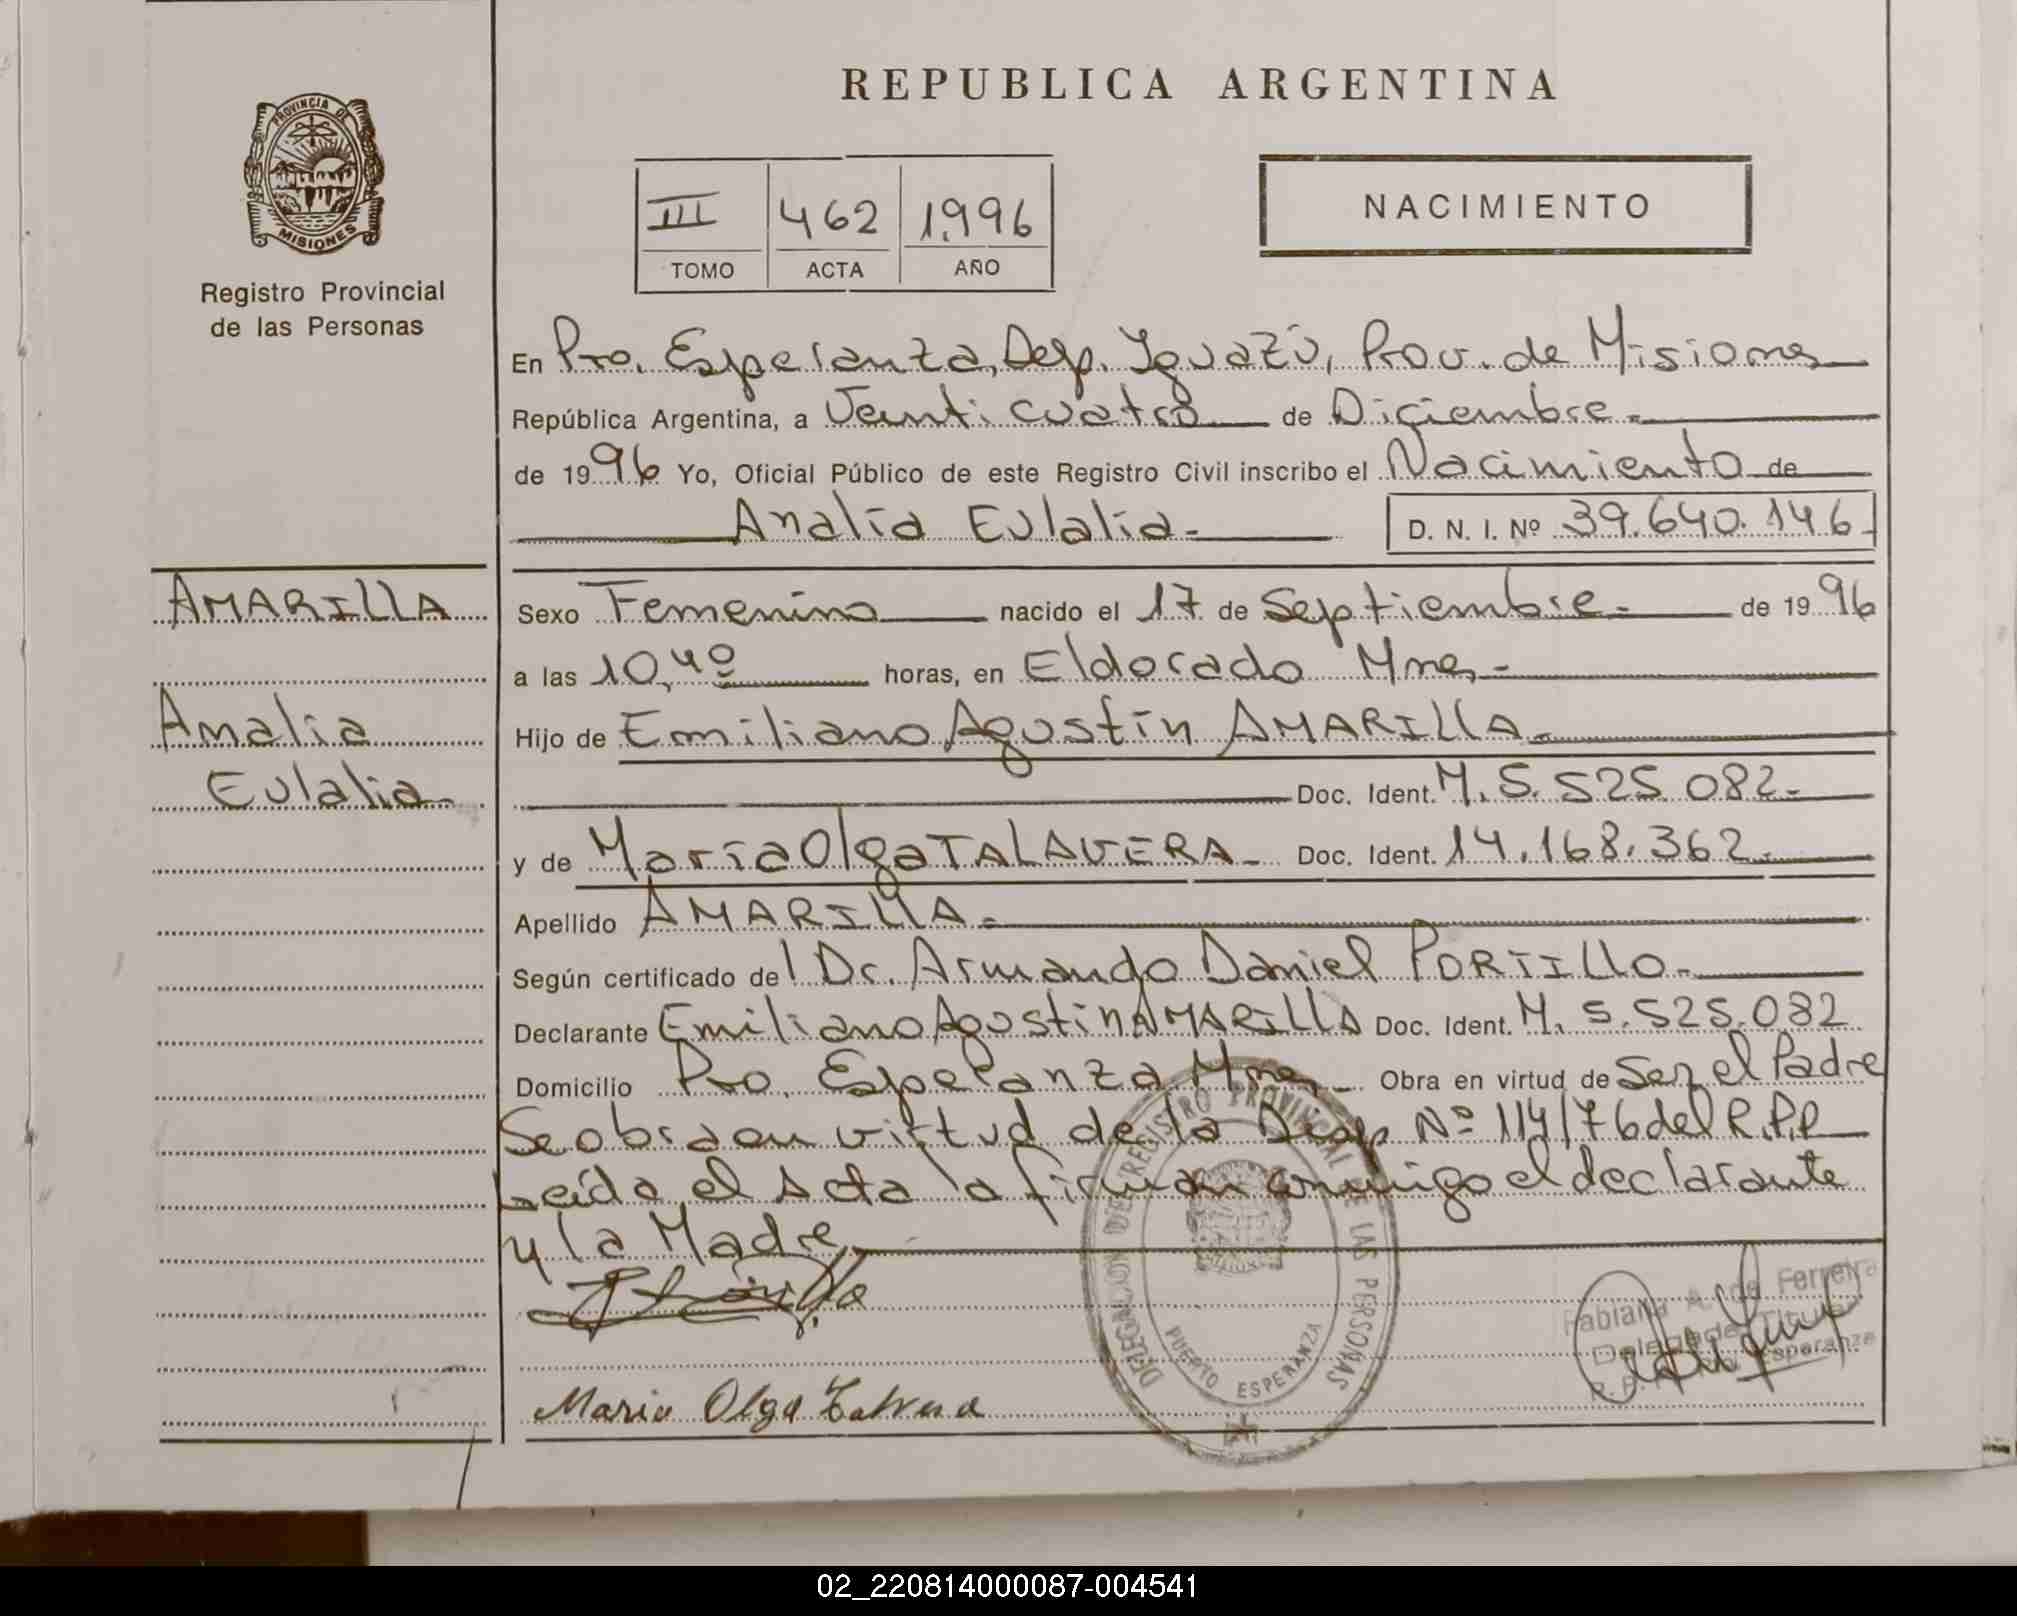 REPUBLICA ARGENTINA
PROVINCIA DE
MISIONES
Registro Provincial
de las Personas
III 462 1.996
TOMO ACTA AÑO
NACIMIENTO
En Pto. Esperanza, Dep. Iguazú, Prov. de Misiones
República Argentina, a Veinticuatro de Diciembre.-
de 1996 Yo, Oficial Público de este Registro Civil inscribo el Nacimiento de
Analía Eulalia.- D. N. I. Nº 39.640.146.-
AMARILLA
Analia
Eulalia.-
Sexo Femenino nacido el 17 de Septiembre.- de 1996
a las 10,40 horas, en Eldorado Mnes.-
Hijo de Emiliano Agustín AMARILLA.-
Doc. Ident. M. 5.525.082.-
y de María Olga TALAVERA.- Doc. Ident. 14.168.362.-
Apellido AMARILLA.-
Según certificado del Dr. Armando Daniel PORTILLO.-
Declarante Emiliano Agustín AMARILLA Doc. Ident. M. 5.525.082
Domicilio Pto. Esperanza Mnes.- Obra en virtud de Ser el Padre
Se obra en virtud de la Disp. Nº 114/76 del R.P.P.
Leída el Acta la firman conmigo el declarante
y la Madre.
Maria Olga
DELEGACION DEL REGISTRO PROVINCIAL DE LAS PERSONAS
PUERTO ESPERANZA
Fabiana A. de Ferreira
Delegada Titular
Esperanza
02_220814000087-004541